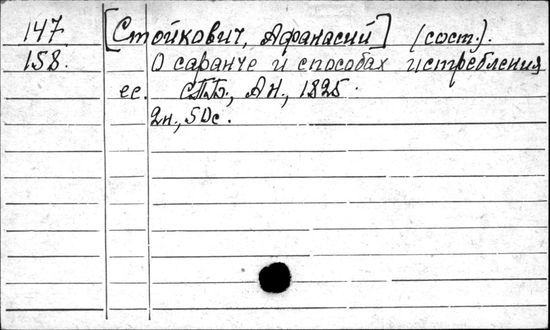 147 [Стойкович, Афанасий] (сост.).
158. О саранче и способах истребления
ее. СПБ., АН., 1825.
2н., 50с.